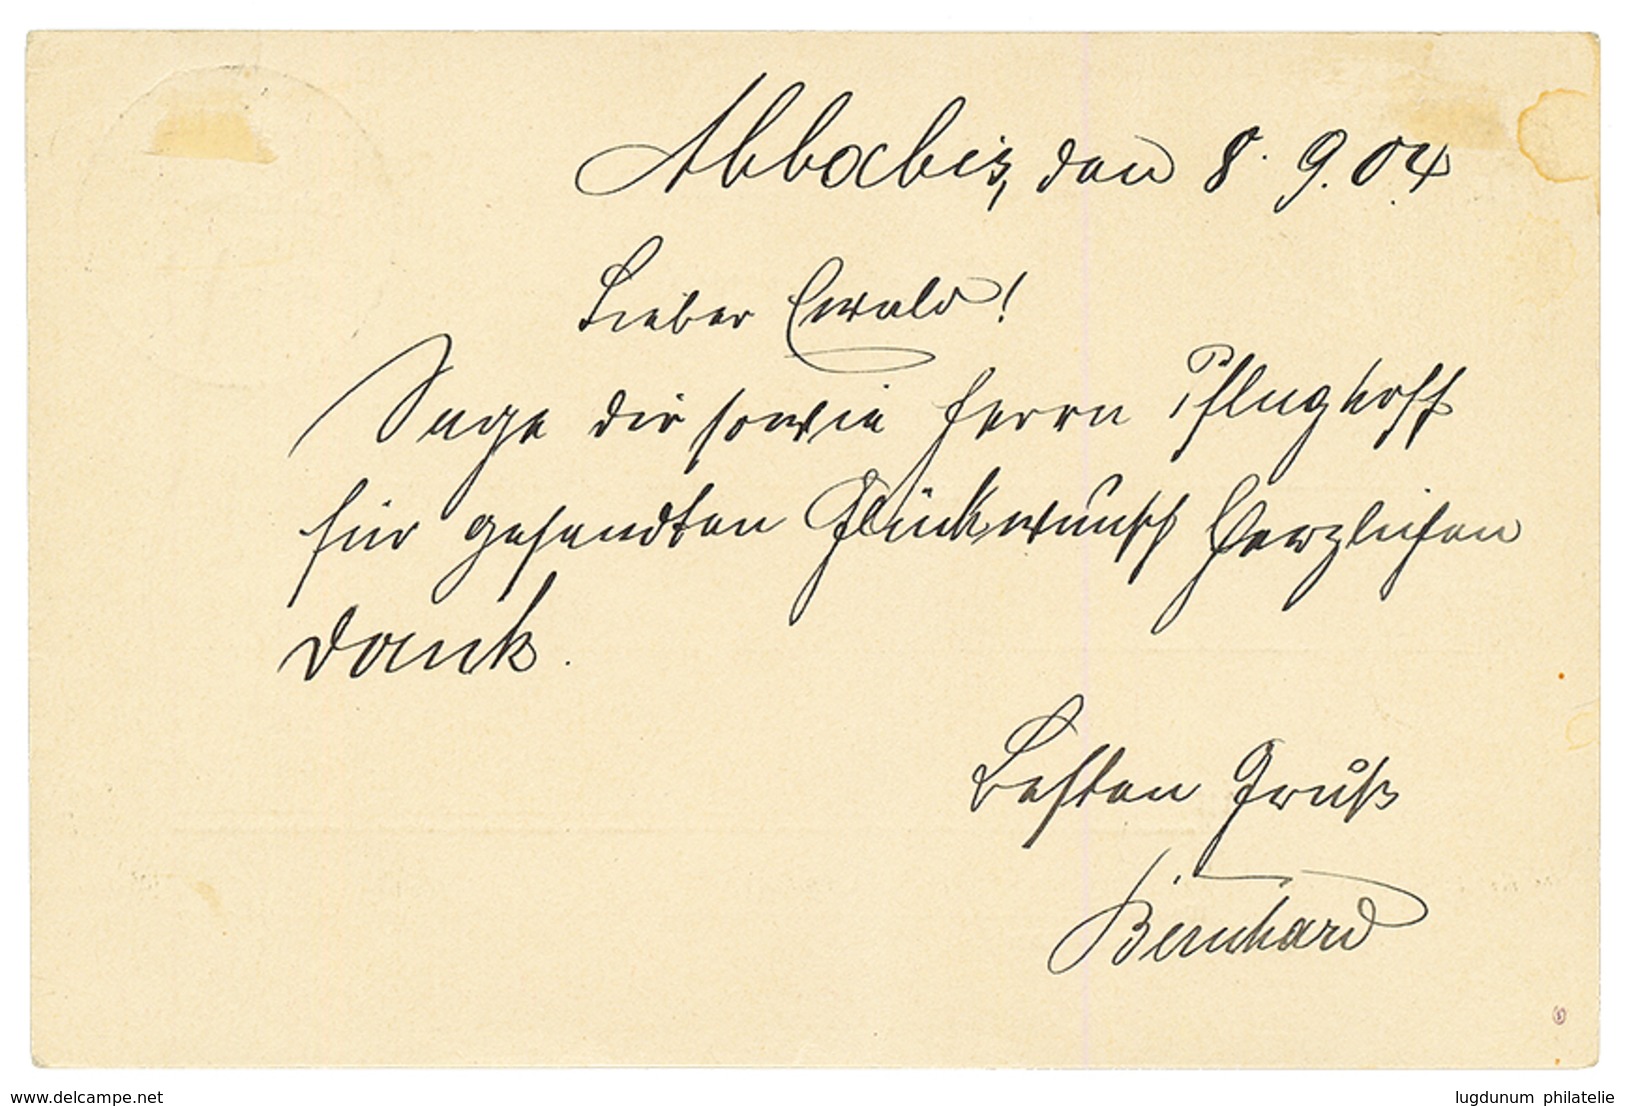 Abbabis, den 8. 9. 04
Lieber Ewald!
Sage dir sowie Herrn Pflughoff
für gesandten Glückwunsch herzlichen
Dank.
Besten Gruß
Bernhard
www.delcampe.net
lugdunum philatelie